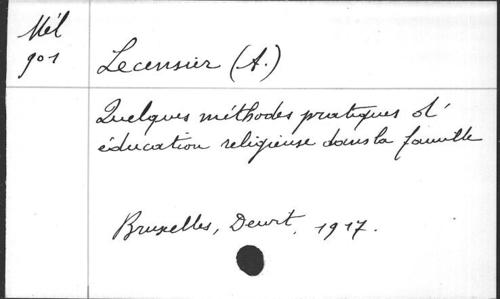 Mél
901
Lecensier (A.)
Quelques méthodes pratiques d'
éducation religieuse dans la famille
Bruxelles, Dewit, 1917.